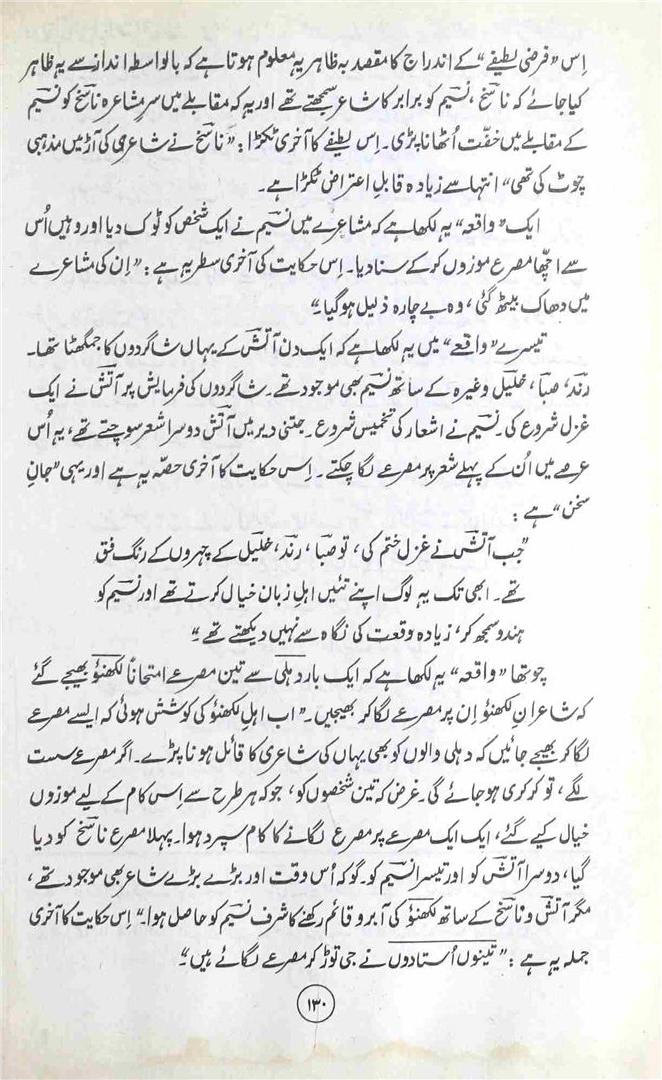 اِس ”فرضی لطیفے“ کے اندراج کا مقصد بہ ظاہر یہ معلوم ہوتا ہے کہ بالواسطہ انداز سے یہ ظاہر
کیا جائے کہ ناسخؔ، نسیمؔ کو برابر کا شاعر سمجھتے تھے اور یہ کہ مقابلے میں سرِ مشاعرہ ناسخؔ کو نسیمؔ
کے مقابلے میں خفّت اُٹھانا پڑی۔ اِس لطیفے کا آخری ٹکڑا: ”ناسخؔ نے شاعری کی آڑ میں مذہبی
چوٹ کی تھی“ انتہا سے زیادہ قابلِ اعتراض ٹکڑا ہے۔
ایک ”واقعہ“ یہ لکھا ہے کہ مشاعرے میں نسیمؔ نے ایک شخص کو ٹوک دیا اور وہیں اُس
سے اچھّا مصرع موزوں کر کے سنا دیا۔ اِس حکایت کی آخری سطر یہ ہے: ”اِن کی مشاعرے
میں دھاک بیٹھ گئی، وہ بے چارہ ذلیل ہو گیا۔“
تیسرے ”واقعے“ میں یہ لکھا ہے کہ ایک دن آتشؔ کے یہاں شاگردوں کا جمگھٹا تھا۔
رندؔ، صباؔ، خلیلؔ وغیرہ کے ساتھ نسیمؔ بھی موجود تھے۔ شاگردوں کی فرمایش پر آتشؔ نے ایک
غزل شروع کی۔ نسیمؔ نے اشعار کی تخمیس شروع۔ جتنی دیر میں آتشؔ دوسرا شعر سوچتے تھے، یہ اُس
عرصے میں اُن کے پہلے شعر پر مصرعے لگا چکتے۔ اِس حکایت کا آخری حصّہ یہ ہے اور یہی ”جانِ
سخن“ ہے:
”جب آتشؔ نے غزل ختم کی، تو صباؔ، رندؔ، خلیلؔ کے چہروں کے رنگ فق
تھے۔ ابھی تک یہ لوگ اپنے تئیں اہلِ زبان خیال کرتے تھے اور نسیمؔ کو
ہندو سمجھ کر، زیادہ وقعت کی نگاہ سے نہیں دیکھتے تھے۔“
چوتھا ”واقعہ“ یہ لکھا ہے کہ ایک بار دہلی سے تین مصرعے امتحاناً لکھنؤ بھیجے گئے
کہ شاعرانِ لکھنؤ اِن پر مصرعے لگا کر بھیجیں۔ ”اب اہلِ لکھنؤ کی کوشش ہوئی کہ ایسے مصرعے
لگا کر بھیجے جائیں کہ دہلی والوں کو بھی یہاں کی شاعری کا قائل ہونا پڑے۔ اگر مصرعے سست
لگے، تو کرکری ہو جائے گی۔ غرض کہ تین شخصوں کو، جو کہ ہر طرح سے اِس کام کے لیے موزوں
خیال کیے گئے، ایک ایک مصرعے پر مصرع لگانے کا کام سپرد ہوا۔ پہلا مصرع ناسخؔ کو دیا
گیا، دوسرا آتشؔ کو اور تیسرا نسیمؔ کو۔ گو کہ اُس وقت اور بڑے بڑے شاعر بھی موجود تھے،
مگر آتشؔ و ناسخؔ کے ساتھ لکھنؤ کی آبرو قائم رکھنے کا شرف نسیمؔ کو حاصل ہوا۔“ اِس حکایت کا آخری
جملہ یہ ہے: ”تینوں اُستادوں نے جی توڑ کر مصرعے لگائے ہیں۔“
۱۳۰